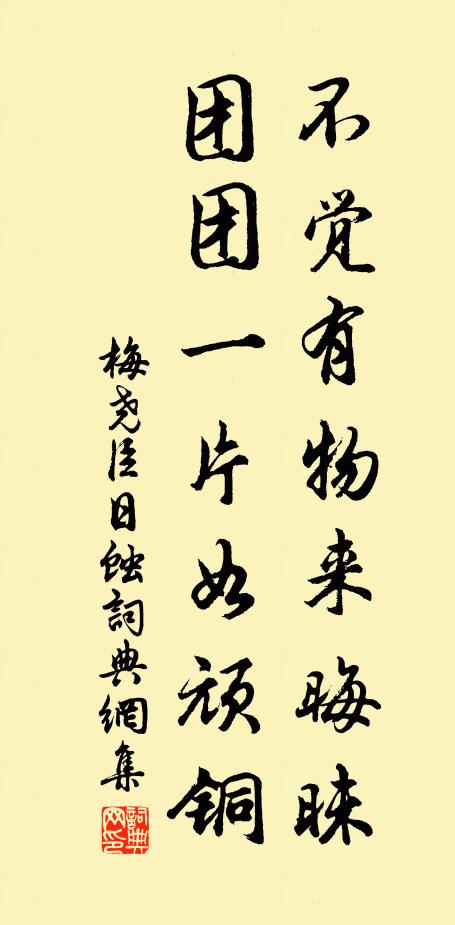 不觉有物来晦昧
团团一片如顽铜
梅尧臣日蚀詞典網集
詞典网印